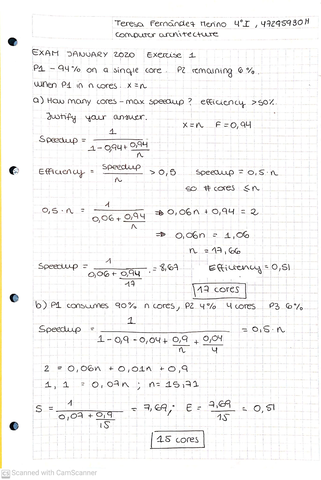 Teresa Fernández Merino 4ºI, 47295930M
computer architecture
EXAM JANUARY 2020 Exercise 1
P1 - 94% on a single core. P2 remaining 6%.
When P1 in n cores: x=n
a) How many cores - max speedup? efficiency >50%.
Justify your answer.
x=n F=0,94
Speedup = 1 / (1-0,94+ 0,94/n)
Efficiency = speedup/n > 0,5 Speedup = 0,5·n
so # cores ≤n
0,5·n = 1 / (0,06+ 0,94/n) ⇒ 0,06n + 0,94 = 2
⇒ 0,06n = 1,06
n = 17,66
Speedup = 1 / (0,06+ 0,94/17) = 8,67 Efficiency = 0,51
17 cores
b) P1 consumes 90% n cores, P2 4% 4 cores P3 6%
Speedup = 1 / (1-0,9-0,04+ 0,9/n + 0,04/4) = 0,5·n
2 = 0,06n + 0,01n + 0,9
1,1 = 0,07n ; n=15,71
S = 1 / (0,07+ 0,9/15) = 7,69; E = 7,69/15 = 0,51
15 cores
CS Scanned with CamScanner